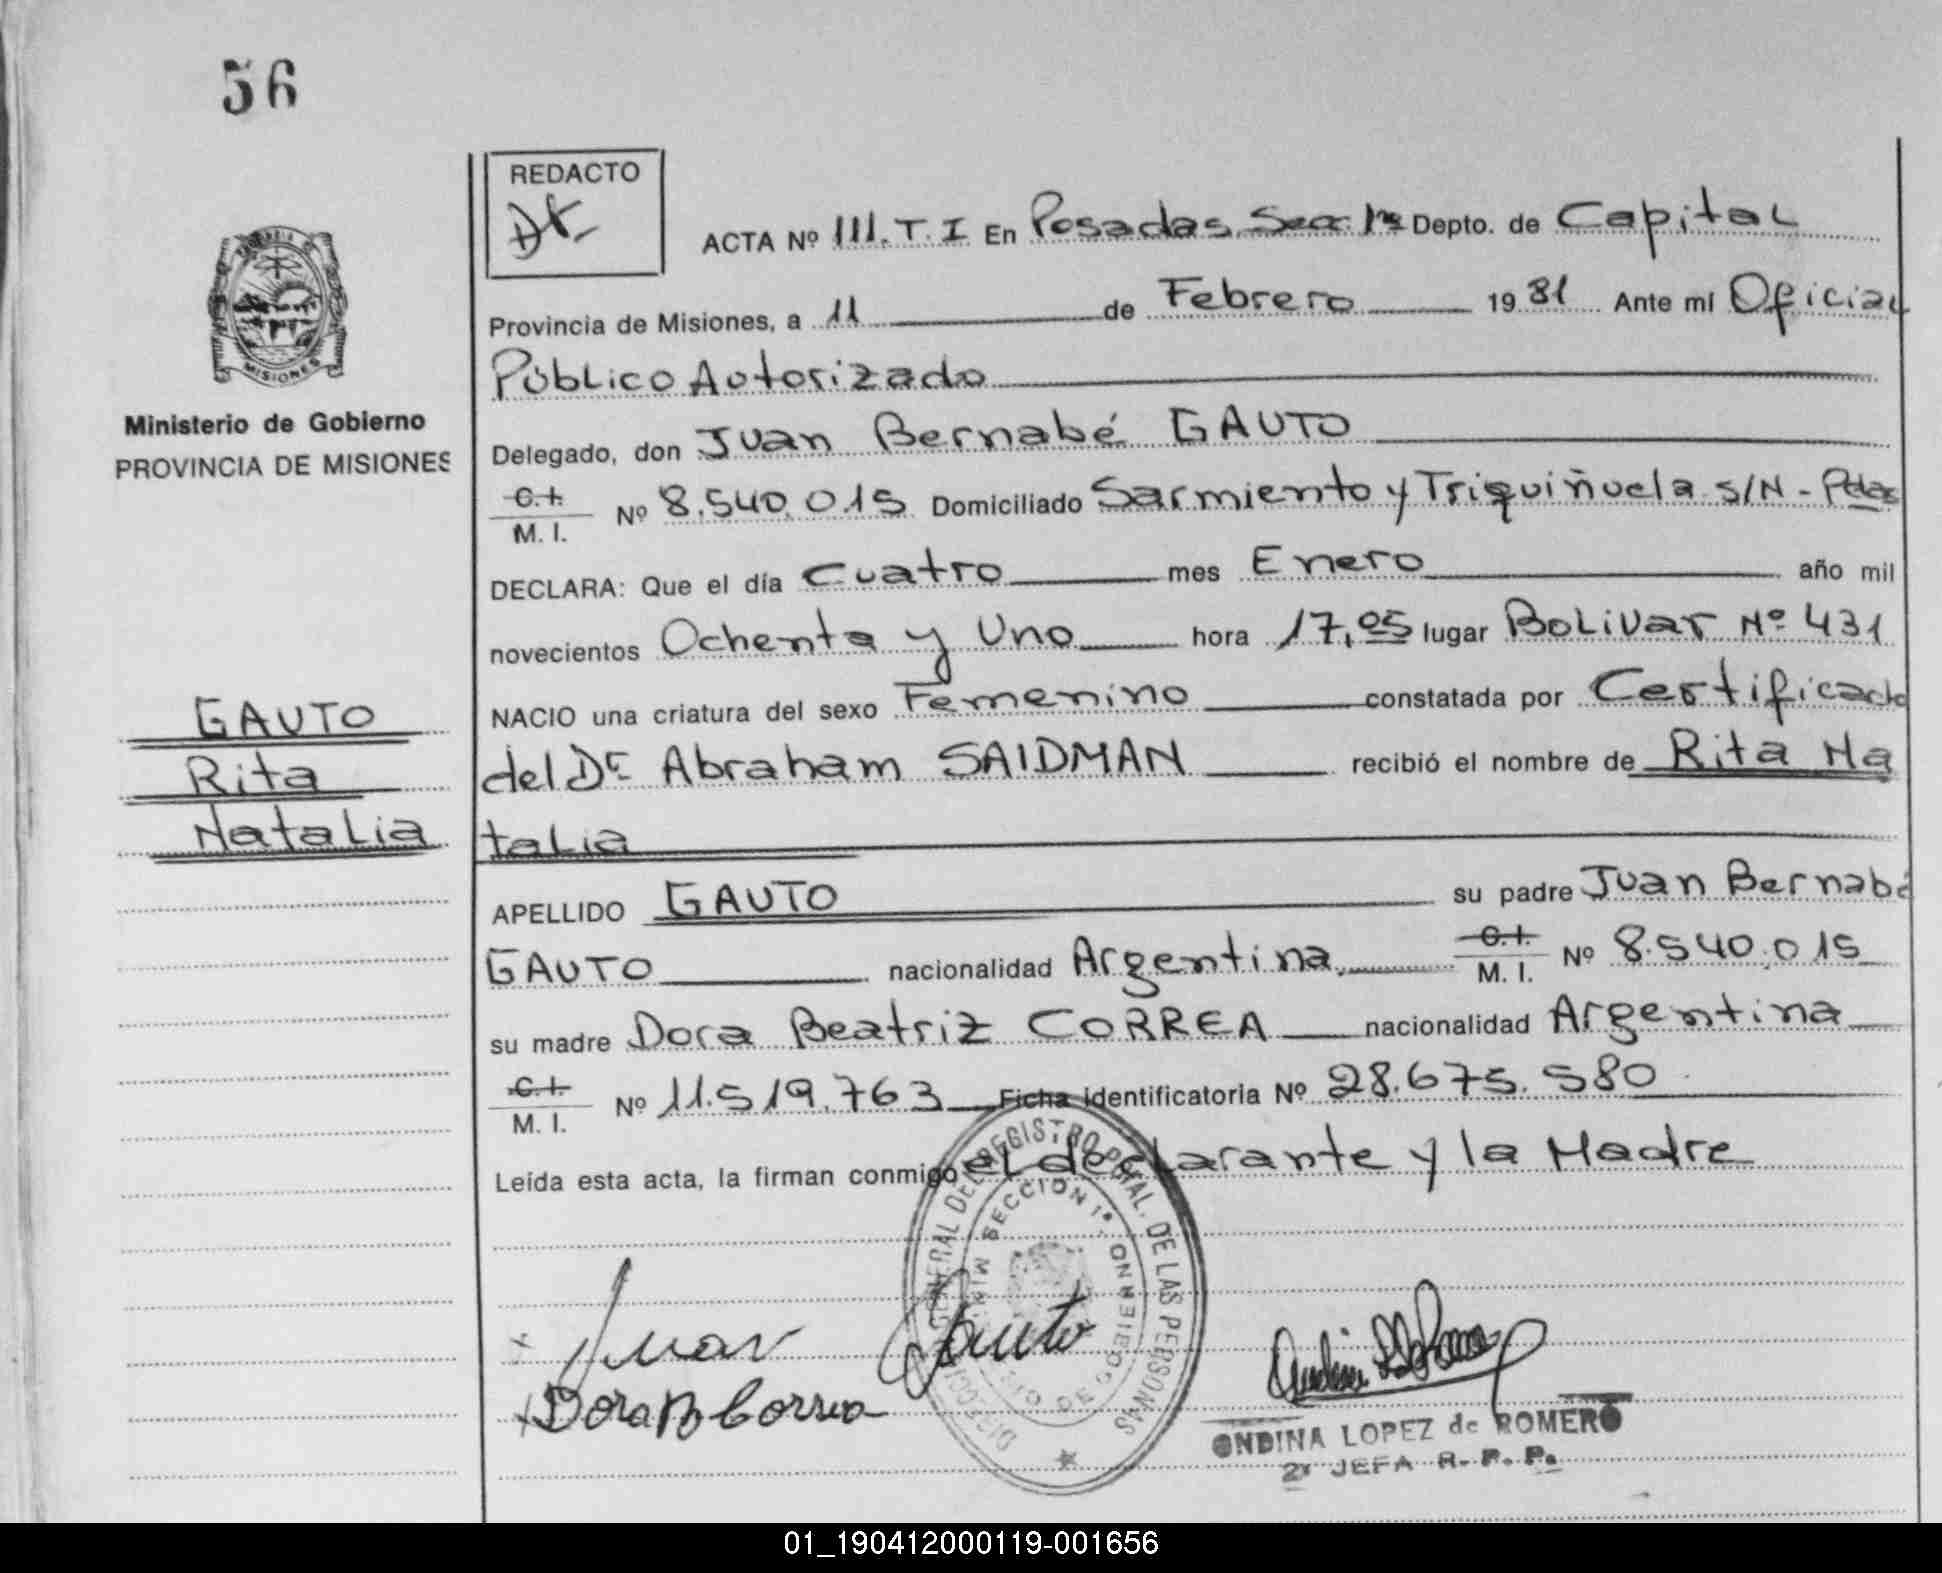 56
REDACTO
ACTA Nº 111. T. I En Posadas Secc. 1ra Depto. de Capital
Provincia de Misiones, a 11 de Febrero 1981 Ante mí Oficial
Público Autorizado
Delegado, don Juan Bernabé GAUTO
C.I.
M. I. Nº 8.540.015 Domiciliado Sarmiento y Triquiñuela S/N - Pdas
DECLARA: Que el día Cuatro mes Enero año mil
novecientos Ochenta y Uno hora 17,05 lugar BoLiVar Nº 431
NACIO una criatura del sexo Femenino constatada por Certificado
del Dr Abraham SAIDMAN recibió el nombre de Rita Na
talia
APELLIDO GAUTO su padre Juan Bernabé
GAUTO nacionalidad Argentina C.I.
M. I. Nº 8.540.015
su madre Dora Beatriz CORREA nacionalidad Argentina
C.I.
M. I. Nº 11.519.763 Ficha identificatoria Nº 28.675.580
Leída esta acta, la firman conmigo el declarante y la Madre
MISIONES
Ministerio de Gobierno
PROVINCIA DE MISIONES
GAUTO
Rita
Natalia
DIRECCION GENERAL DEL REGISTRO PCIAL. DE LAS PERSONAS
SECCION 1ª
MINISTERIO DE GOBIERNO
Juan Gauto
Dora B Correa
ONDINA LOPEZ de ROMERO
2ª JEFA R. P. P.
01_190412000119-001656